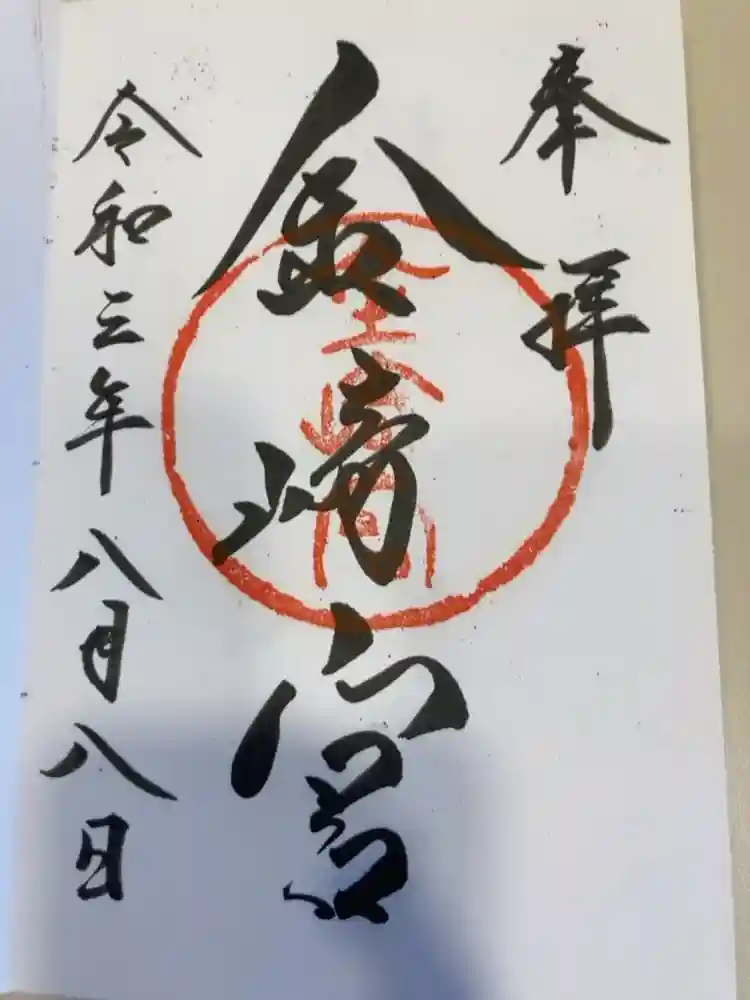 奉拝
金崎宮
金崎宮
令和三年八月八日